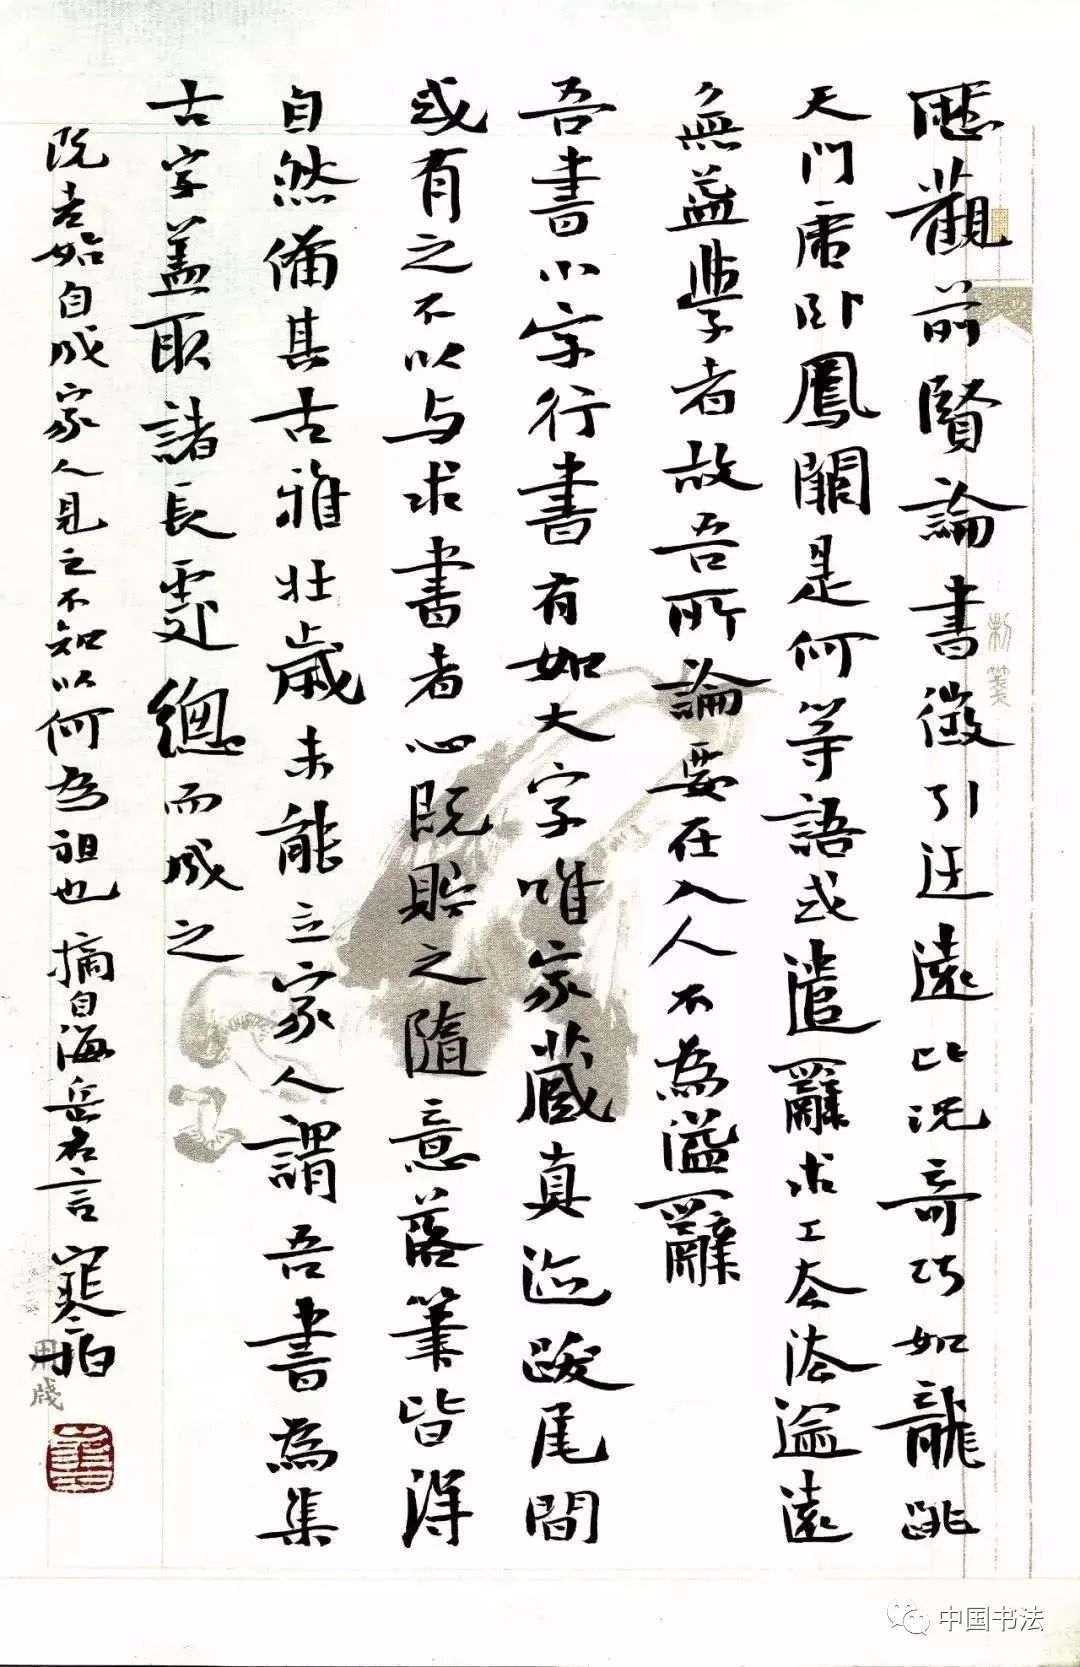 歷觀前賢論書徵引迂遠比況奇巧如龍跳
天門虎卧鳳闕是何等語或遣辭求工去法逾遠
無益學者故吾所論要在入人不為溢辭
吾書小字行書有如大字唯家藏真跡跋尾間
或有之不以与求書者心既貯之隨意落筆皆得
自然備其古雅壯歲未能立家人謂吾書為集
古字蓋取諸長處總而成之
既老始自成家人見之不知以何為祖也 摘自海岳名言 寒柏
制箋
用牋
中国书法